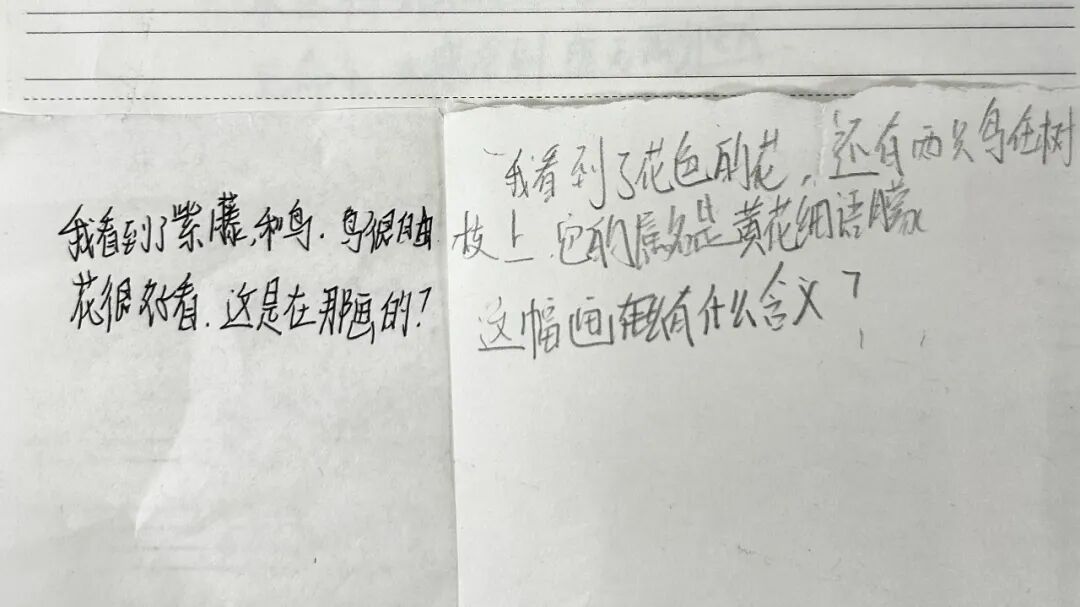 我看到了紫藤,和鸟.鸟很自由
花很好看.这是在那画的?
我看到了花色的花,还有两只鸟在树
枝上.它的属名是黄花细语朦
这幅画有什么含义?